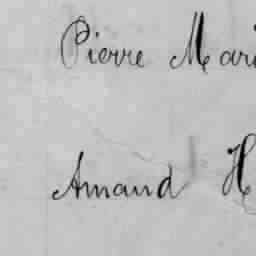 Pierre Mari
Amand H